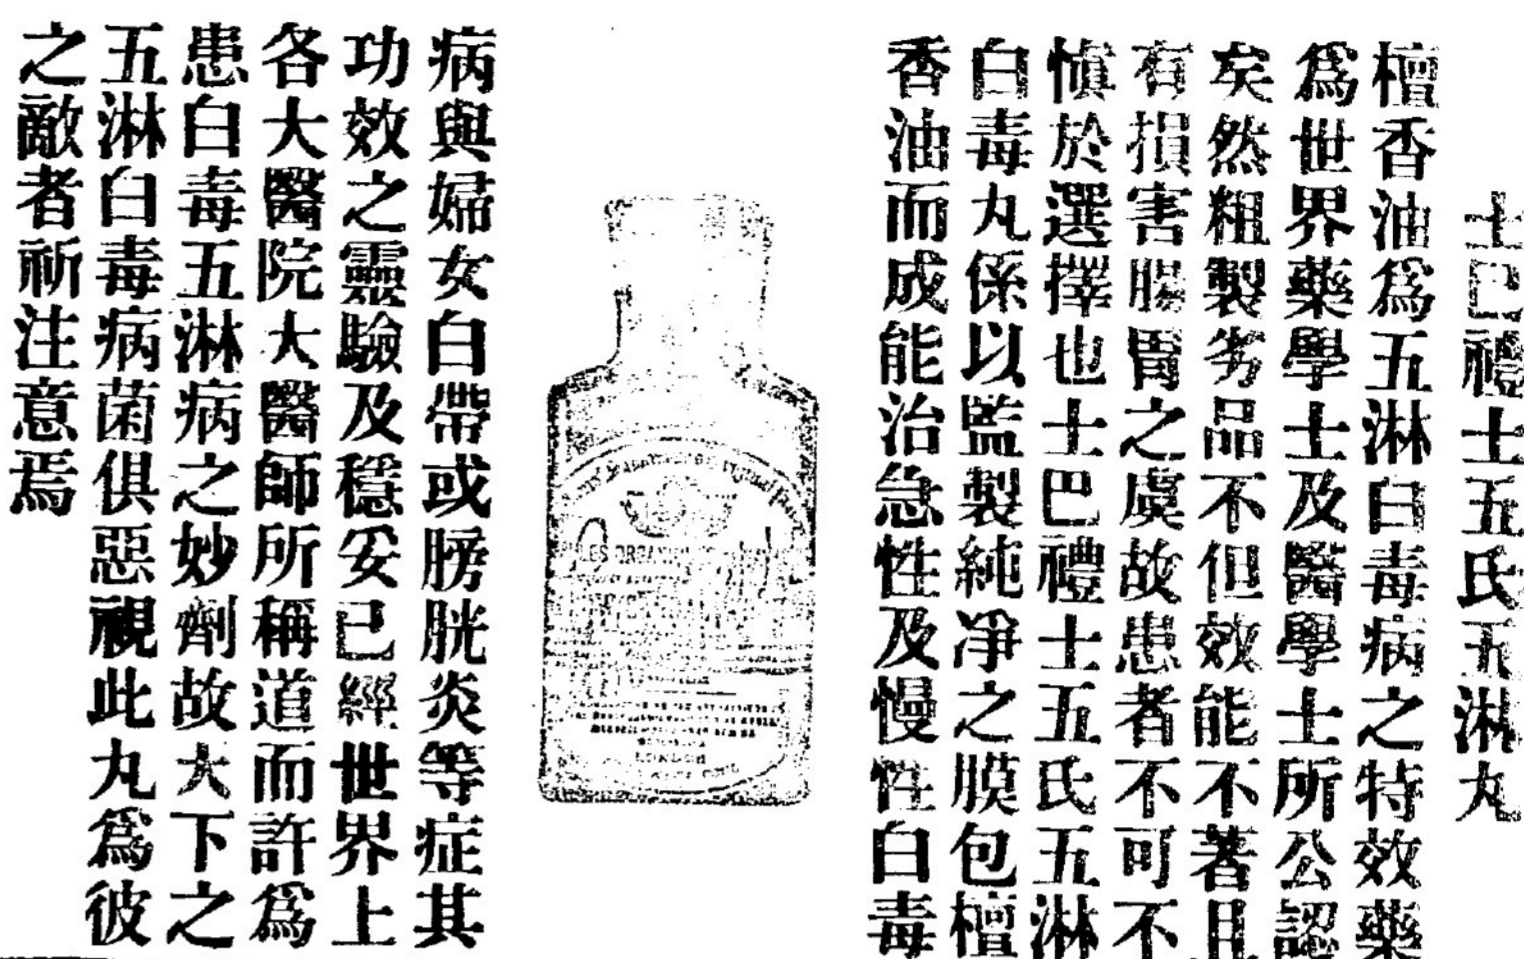 士巴禮士五氏五淋丸
檀香油爲五淋白毒病之特效藥
爲世界藥學士及醫學士所公認
矣然粗製劣品不但效能不著且
有損害腸胃之虞故患者不可不
慎於選擇也士巴禮士五氏五淋
白毒丸係以監製純凈之膜包檀
香油而成能治急性及慢性白毒
病與婦女白帶或膀胱炎等症其
功效之靈驗及穩妥已經世界上
各大醫院大醫師所稱道而許爲
患白毒五淋病之妙劑故大下之
五淋白毒病菌俱惡視此丸爲彼
之敵者祈注意焉
LONDON